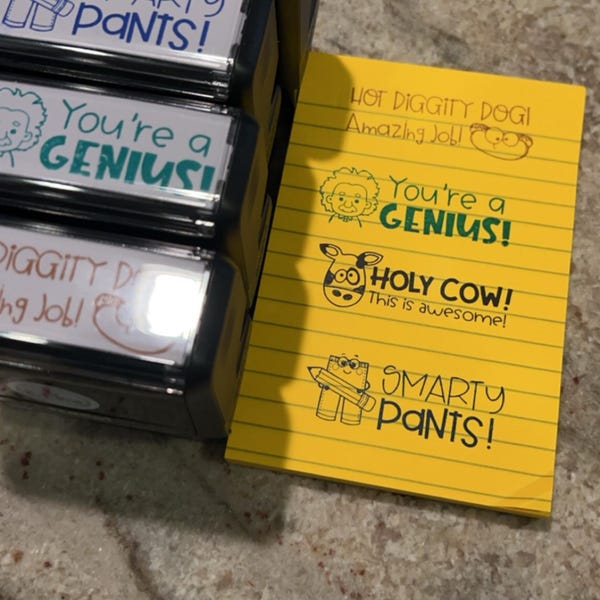 SMARTY
PANTS!
You're a
GENIUS!
DIGGITY
Job!
HOT DIGGITY DOG!
Amazing Job!
You're a
GENIUS!
HOLY COW!
This is awesome!
SMARTY
PANTS!